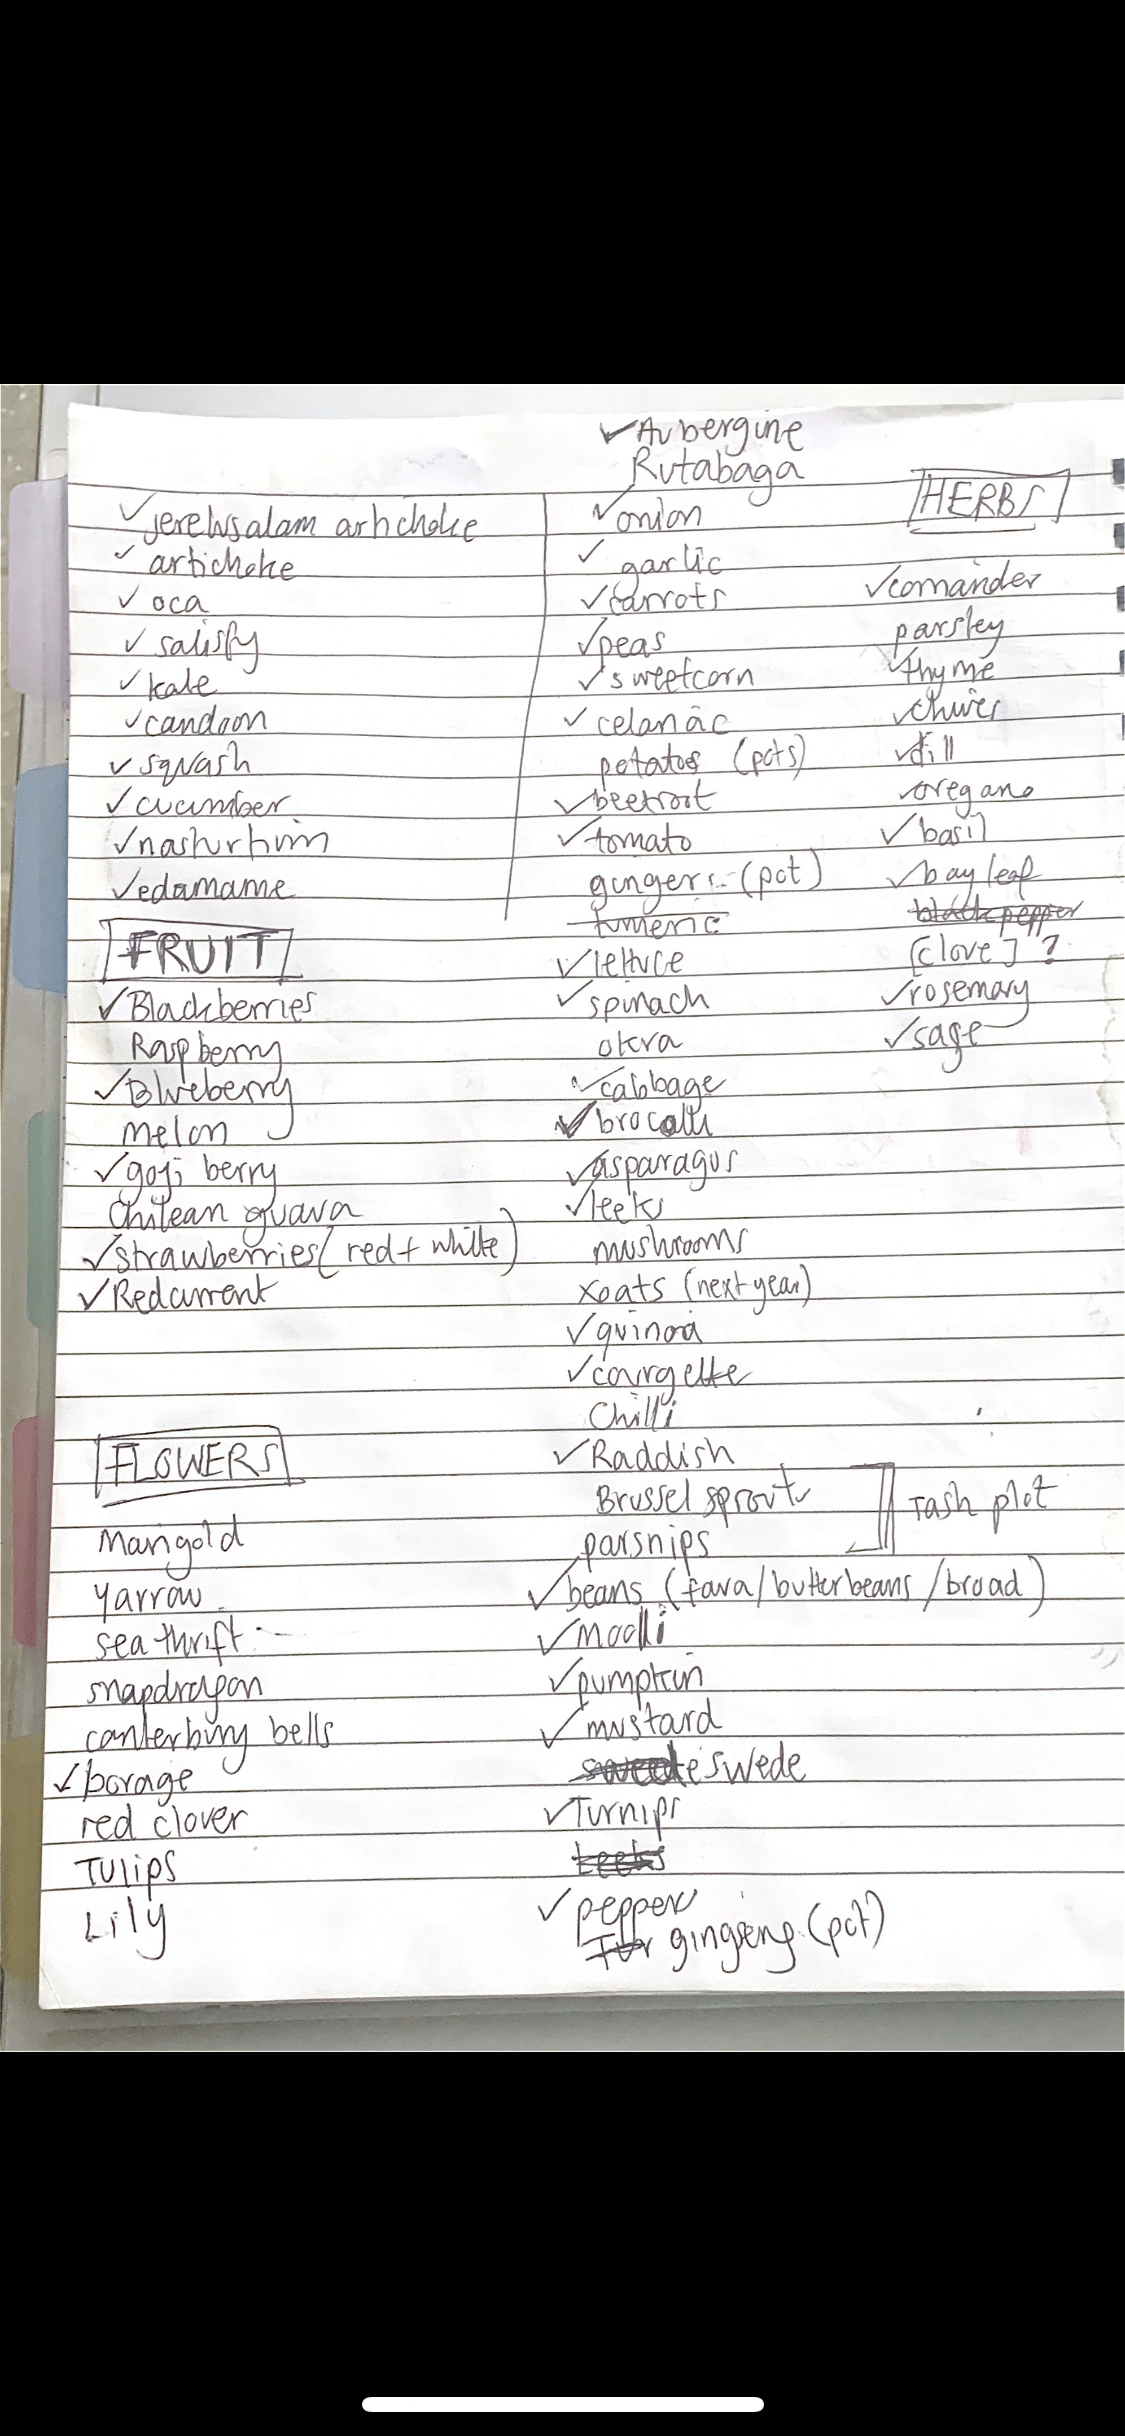 ✓ Aubergine
Rutabaga
✓ jerewsalam artichoke
✓ artichoke
✓ oca
✓ salisfy
✓ kale
✓ candoon
✓ squash
✓ cucumber
✓ nasturtium
✓ edamame
FRUIT
✓ Blackberries
Raspberry
✓ Blueberry
melon
✓ goji berry
Chilean guava
✓ strawberries (red + white)
✓ Redcurrent
FLOWERS
Marigold
yarrow
sea thrift
snapdragon
canterbury bells
✓ borage
red clover
Tulips
Lily
✓ onion
✓ garlic
✓ carrots
✓ peas
✓ sweetcorn
✓ celariac
potatos (pots)
✓ beetroot
✓ tomato
ginger (pot)
tumeric
✓ lettuce
✓ spinach
okra
✓ cabbage
✓ brocolli
✓ asparagus
✓ leeks
mushrooms
x oats (next year)
✓ quinoa
✓ courgette
Chilli
✓ Raddish
Brussel sprouts
parsnips
Tash plot
✓ beans (fava/butterbeans/broad)
✓ Moolli
✓ pumpkin
✓ mustard
swede
✓ Turnips
leeks
✓ pepper
gingseng (pot)
HERBS
✓ coriander
parsley
✓ thyme
✓ chives
✓ dill
✓ oregano
✓ basil
✓ bay leaf
black pepper
[clove] ?
✓ rosemary
✓ sage